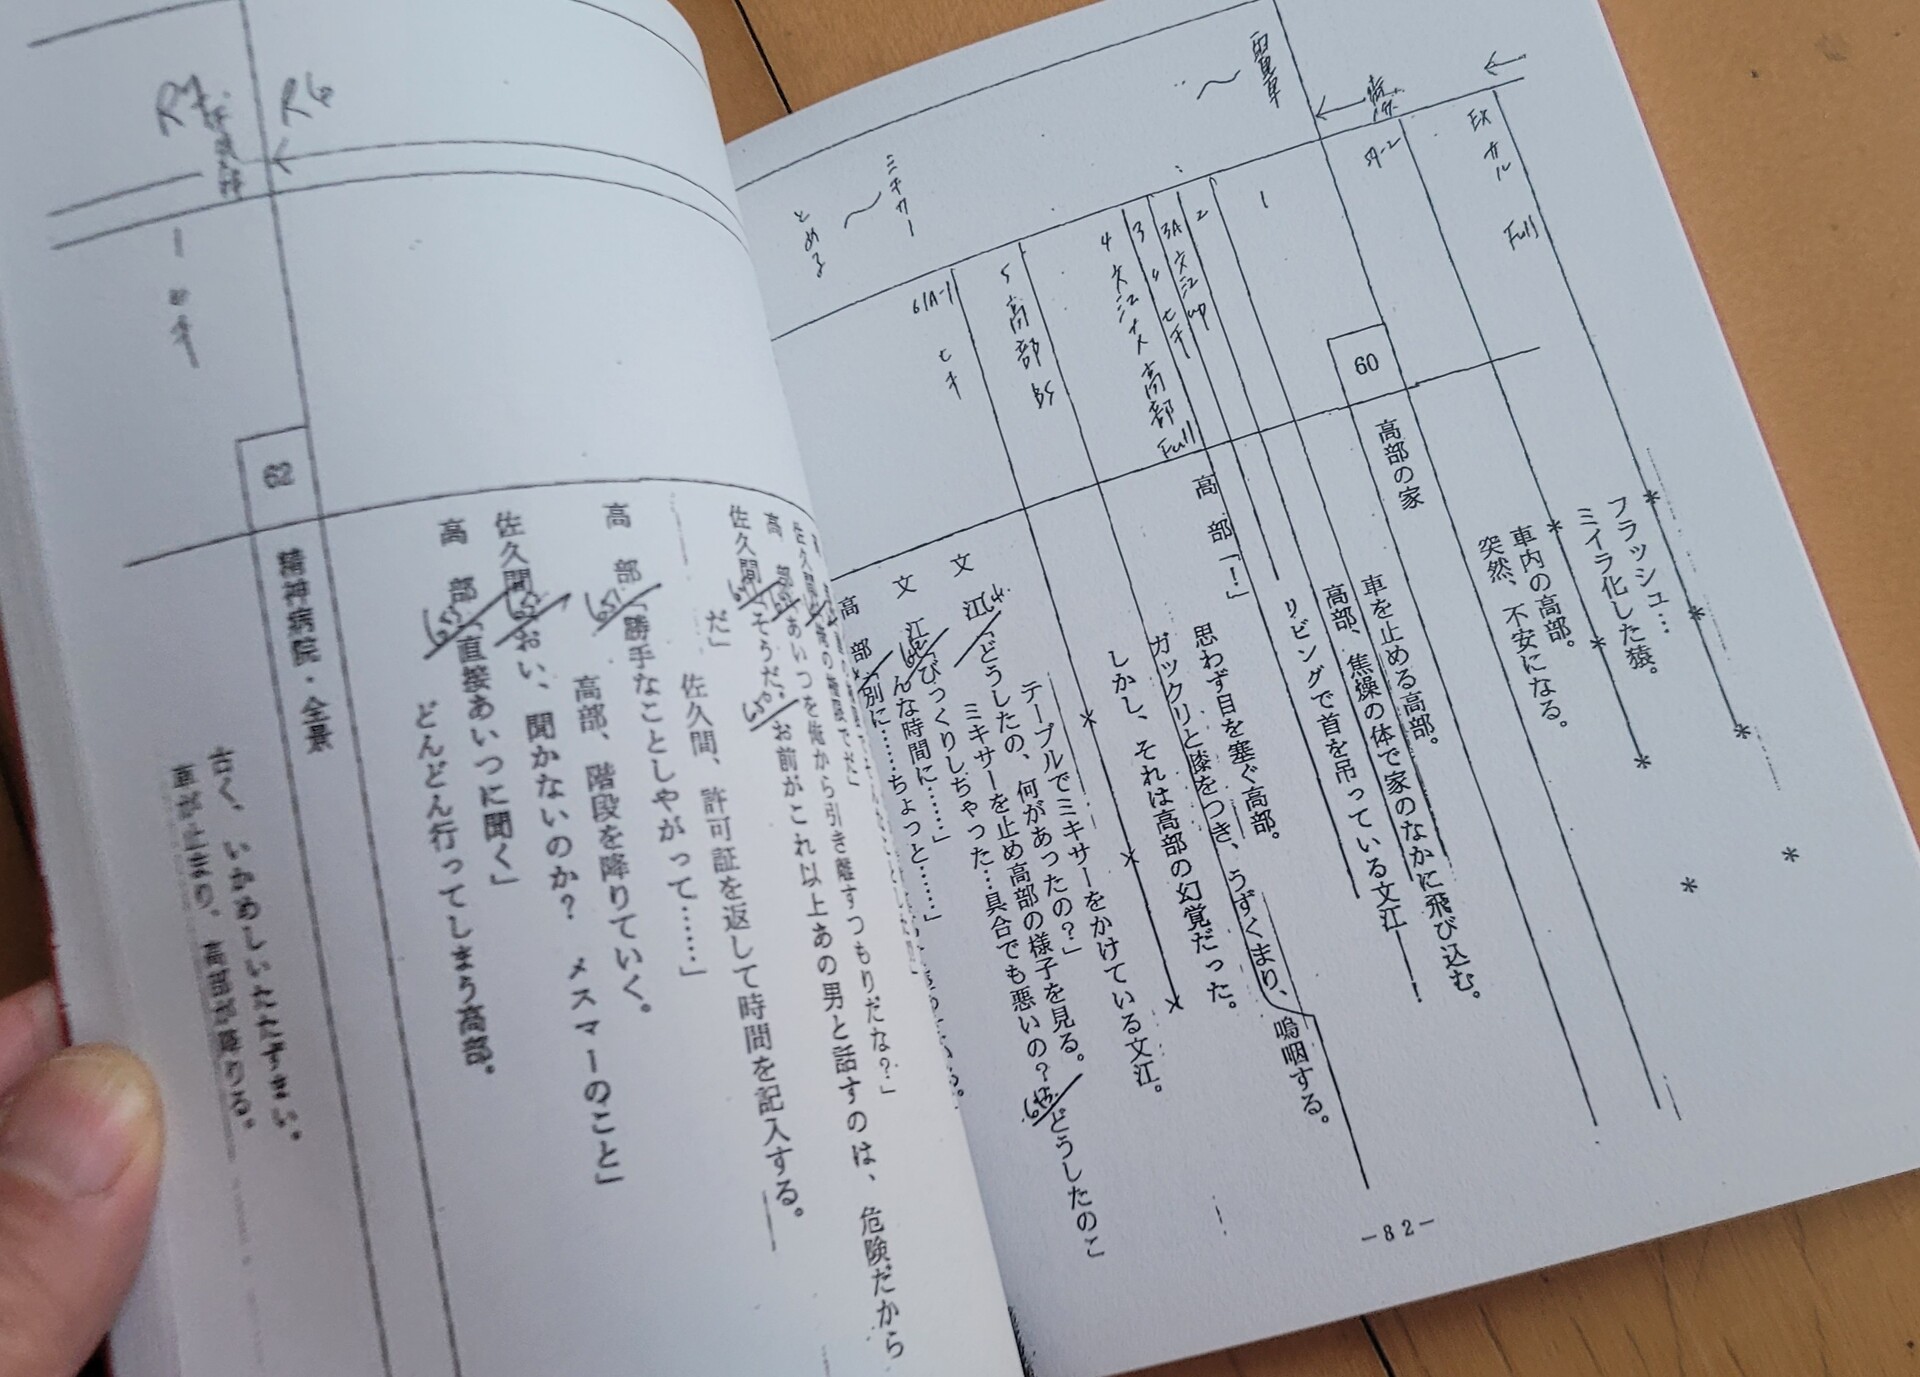 フラッシュ…
ミイラ化した猿。
* * * *
車内の高部。
突然、不安になる。
* * *
* *
60
高部の家
車を止める高部。
高部、焦燥の体で家のなかに飛び込む。
リビングで首を吊っている文江――!
高　部「!」
思わず目を塞ぐ高部。
ガックリと膝をつき、うずくまり、嗚咽する。
しかし、それは高部の幻覚だった。
テーブルでミキサーをかけている文江。
文　江「どうしたの、何があったの?」
ミキサーを止め高部の様子を見る。
文　江「びっくりしちゃった…具合でも悪いの? どうしたのこ
んな時間に……」
高　部「別に……ちょっと……」
-82-
EX
サル
Full
59-2
1
2
3A 文江 up
3
4 文江ナメ高部 Full
5 高部 BS
61A-1
ヒキ
ミキサー
とめる
佐久間
高　部「あいつを俺から引き離すつもりだな?」
佐久間「そうだ。お前がこれ以上あの男と話すのは、危険だから
だ」
佐久間、許可証を返して時間を記入する。
高　部「勝手なことしやがって……」
高部、階段を降りていく。
佐久間「おい、聞かないのか?　メスマーのこと」
高　部「直接あいつに聞く」
どんどん行ってしまう高部。
62
精神病院・全景
古く、いかめしいたたずまい。
車が止まり、高部が降りる。
R6
R7
1